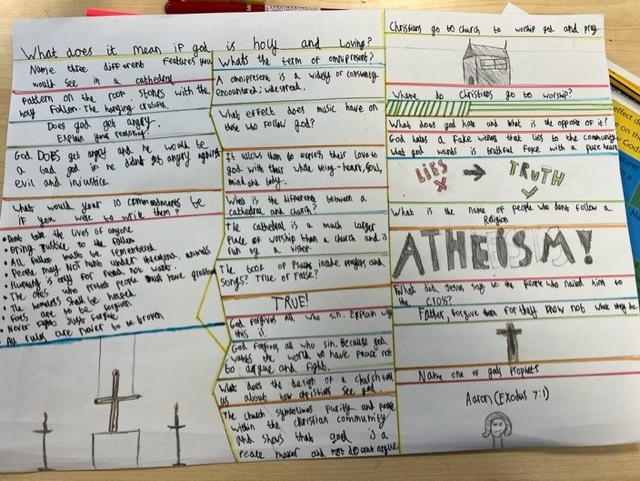 What does it mean if god is holy and loving?
Name three different features you
would see in a cathedral
pattern on the roof stones with the
holy Father. The hanging crucifix.
Does god get angry.
Explain your reasoning?
God DOES get angry and he would be
a bad god if he didnt get angry against
evil and injustice.
What would your 10 commandments be
if you were to write them?
• Dont take the lives of anyone
• Bring justice to the fallen
• All fallen must be remembered
• People may not hunt animals
• Hunting is only for need not wants.
• The ones who protect people must have
• The wounded shall be helped
• Foes are to be forgiven
• Never fights
• All rules are never to be broken
Whats the term of omnipresent?
A omnipresent is a widely or constantly
encountered; widespread.
What effect does music have on
those who follow god?
It allows them to express their love to
god with their whole being - heart, soul,
mind and body.
What is the different between a
cathedral and church?
The cathedral is a much larger
place of worship than a church and is
run by a
The book of Psalms inside prayers and
songs? True or False?
TRUE!
God forgives all who sin. Explain why
this is.
God forgives all who sin. Because god
wants the world to have peace not
to argue and fight.
What does the design of a church tell
us about how christians see god
The church symbolises purity and
within the christian community
and shows that god is a
peace maker and not argue
Christians go to church to worship god and pray
Where do Christians go to worship?
What does god hate and what is the opposite of it?
God hates a fake witness that lies to the community
What god wants is truthful with a pure heart
LIES → TRUTH
What is the name of people who dont follow a
Religion
ATHEISM!
What did Jesus say to the people who nailed him to
the cross?
Father forgive them for they know not what they do.
Name one of gods prophets
Aaron (Exodus 7:1)